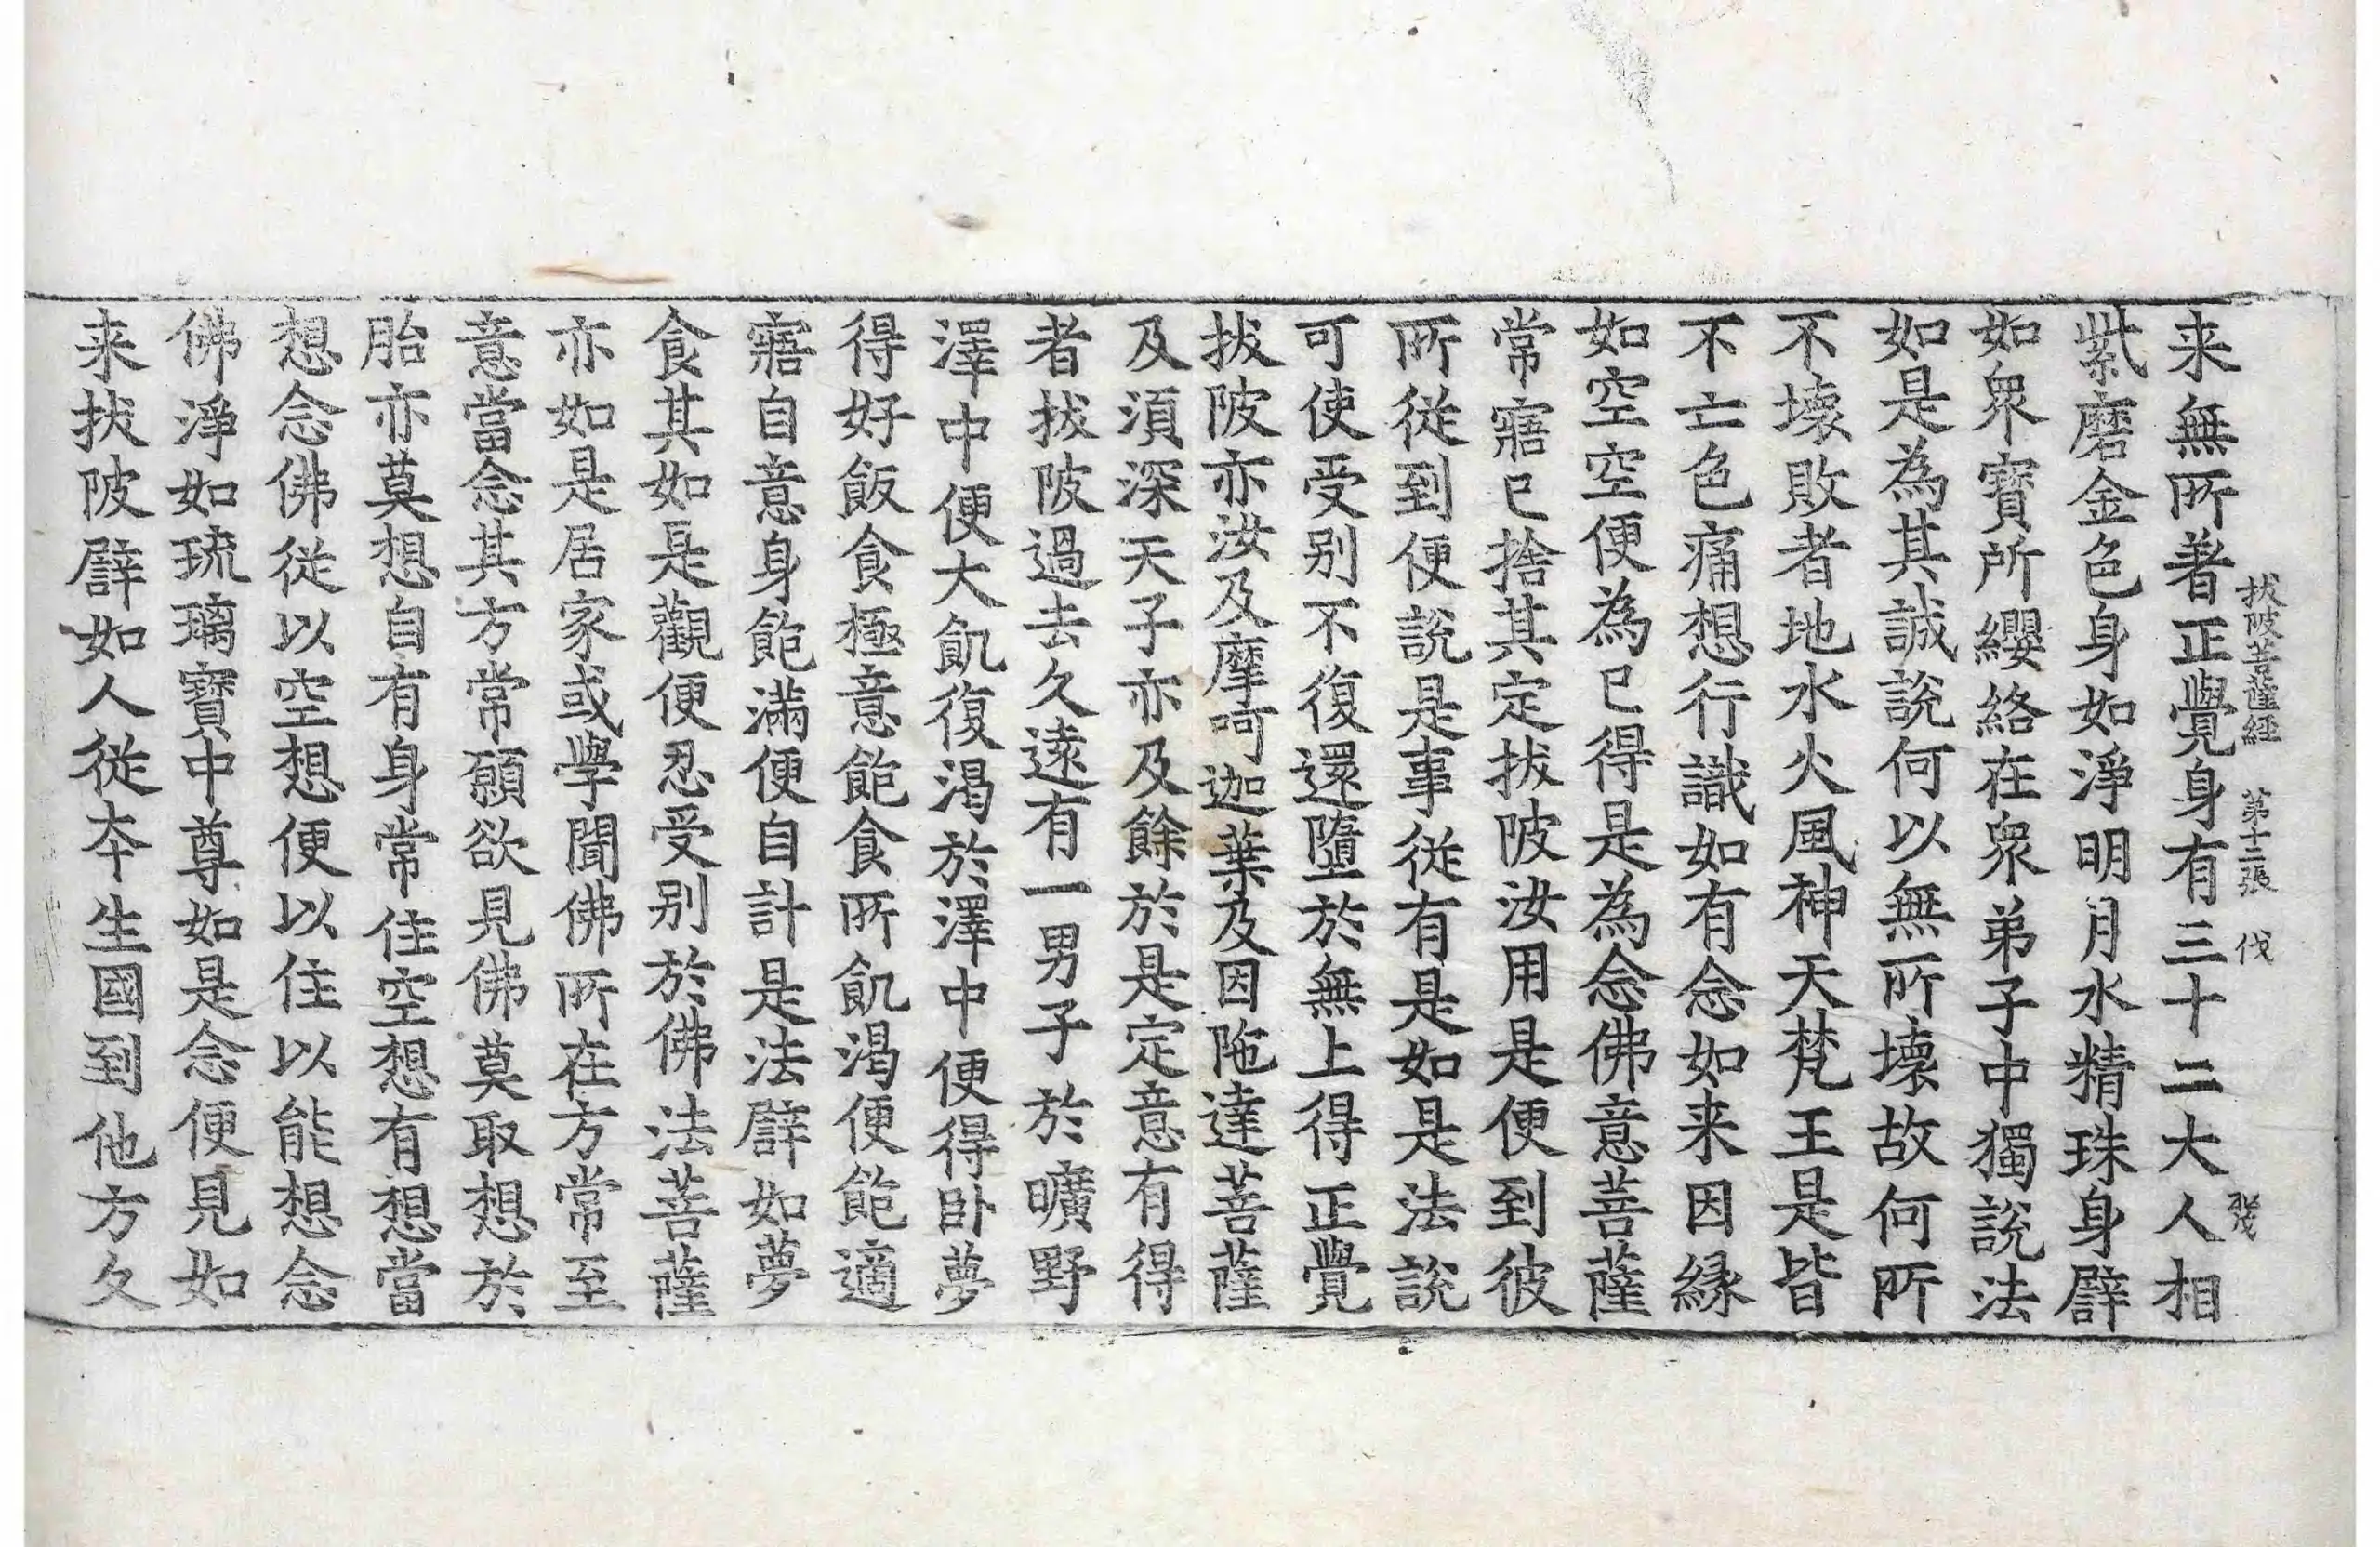 拔陂菩薩經 第十二張 伐
来無所著正覺身有三十二大人相
紫磨金色身如淨明月水精珠身譬
如衆寶所纓絡在衆弟子中獨說法
如是為其誠說何以無所壞故何所
不壞敗者地水火風神天梵王是皆
不亡色痛想行識如有念如来因縁
如空空空便為已得是為念佛意菩薩
常寤已捨其定拔陂汝用是便到彼
所從到便說是事從有是如是法說
可使受别不復還墮於無上得正覺
拔陂亦汝及摩呵迦葉及因陁達菩薩
及湏深天子亦及餘於是定意有得
者拔陂過去久遠有一男子於曠野
澤中便大飢復渴於澤中便得卧夢
得好飯食極意飽食所飢渴便飽適
寤自意身飽滿便自計是法譬如夢
食其如是觀便忍受别於佛法菩薩
亦如是居家或學聞佛所在方常至
意當念其方常願欲見佛莫取想於
胎亦莫想自有身常住空想有想當
想念佛從以空想便以住以能想念
佛淨如琉璃寶中尊如是念便見如
来拔陂譬如人從夲生國到他方久